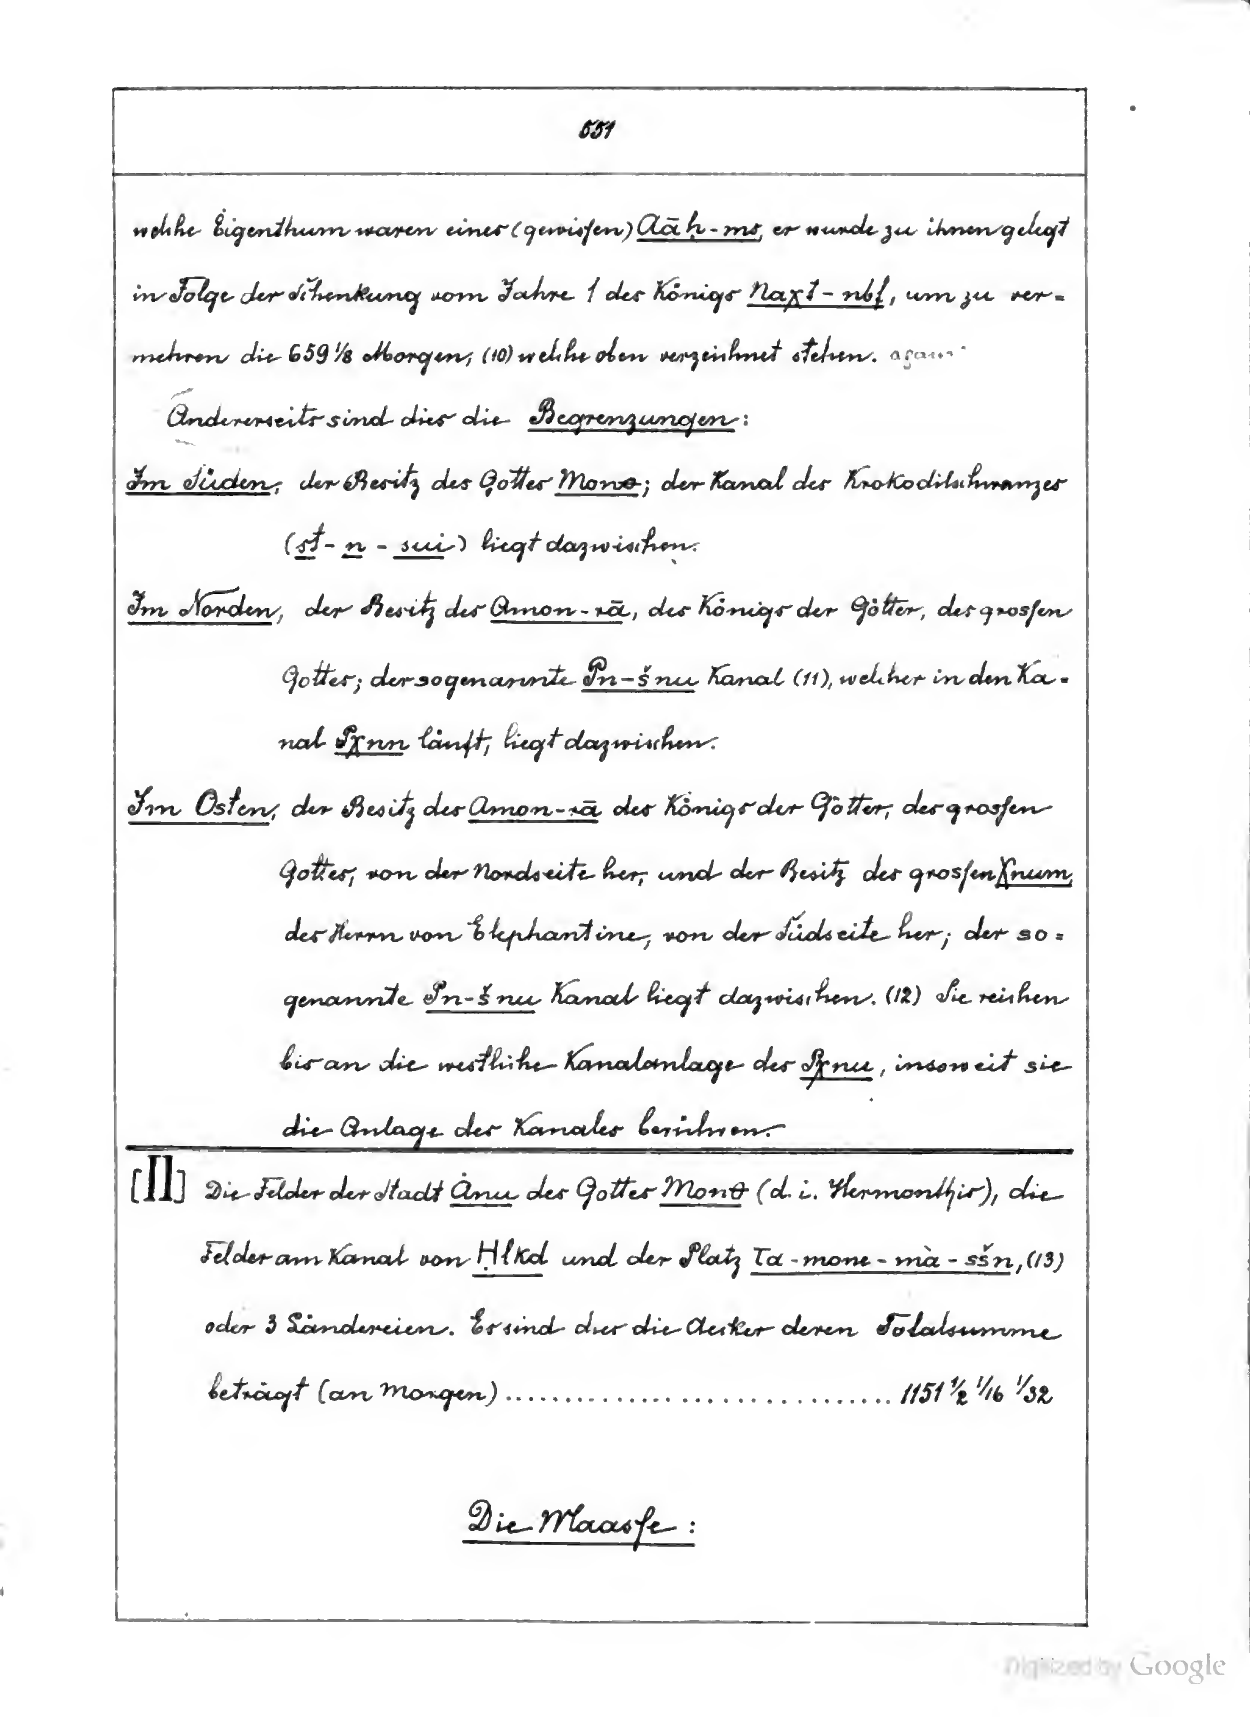 551
welche Eigenthum waren eines (gewissen) Aāḥ-ms, er wurde zu ihnen gelegt
in Folge der Schenkung vom Jahre 1 des Königs Naχt-nbf, um zu ver=
mehren die 659 1/8 Morgen, (10) welche oben verzeichnet stehen.
Andererseits sind dies die Begrenzungen:
Im Süden, der Besitz des Gottes Monθ; der Kanal des Krokodilschwanzes
(st-n-sui) liegt dazwischen.
Im Norden, der Besitz des Amon-rā, des Königs der Götter, des grossen
Gottes; der sogenannte Pn-šnu Kanal (11), welcher in den Ka=
nal Pχnn läuft, liegt dazwischen.
Im Osten, der Besitz des Amon-rā des Königs der Götter, des grossen
Gottes, von der Nordseite her, und der Besitz des grossen Χnum,
des Herrn von Elephantine, von der Südseite her; der so=
genannte Pn-šnu Kanal liegt dazwischen. (12) Sie reichen
bis an die westliche Kanalanlage des Pχnu, insoweit sie
die Anlage des Kanales berühren.
[II] Die Felder der Stadt Ȧnu des Gottes Monθ (d. i. Hermonthis), die
Felder am Kanal von Ḥlkd und der Platz Ta-mone-mà-sšn, (13)
oder 3 Ländereien. Es sind dies die Aecker deren Totalsumme
beträgt (an Morgen) ................................ 1151 1/2 1/16 1/32
Die Maasse:
Digitized by Google